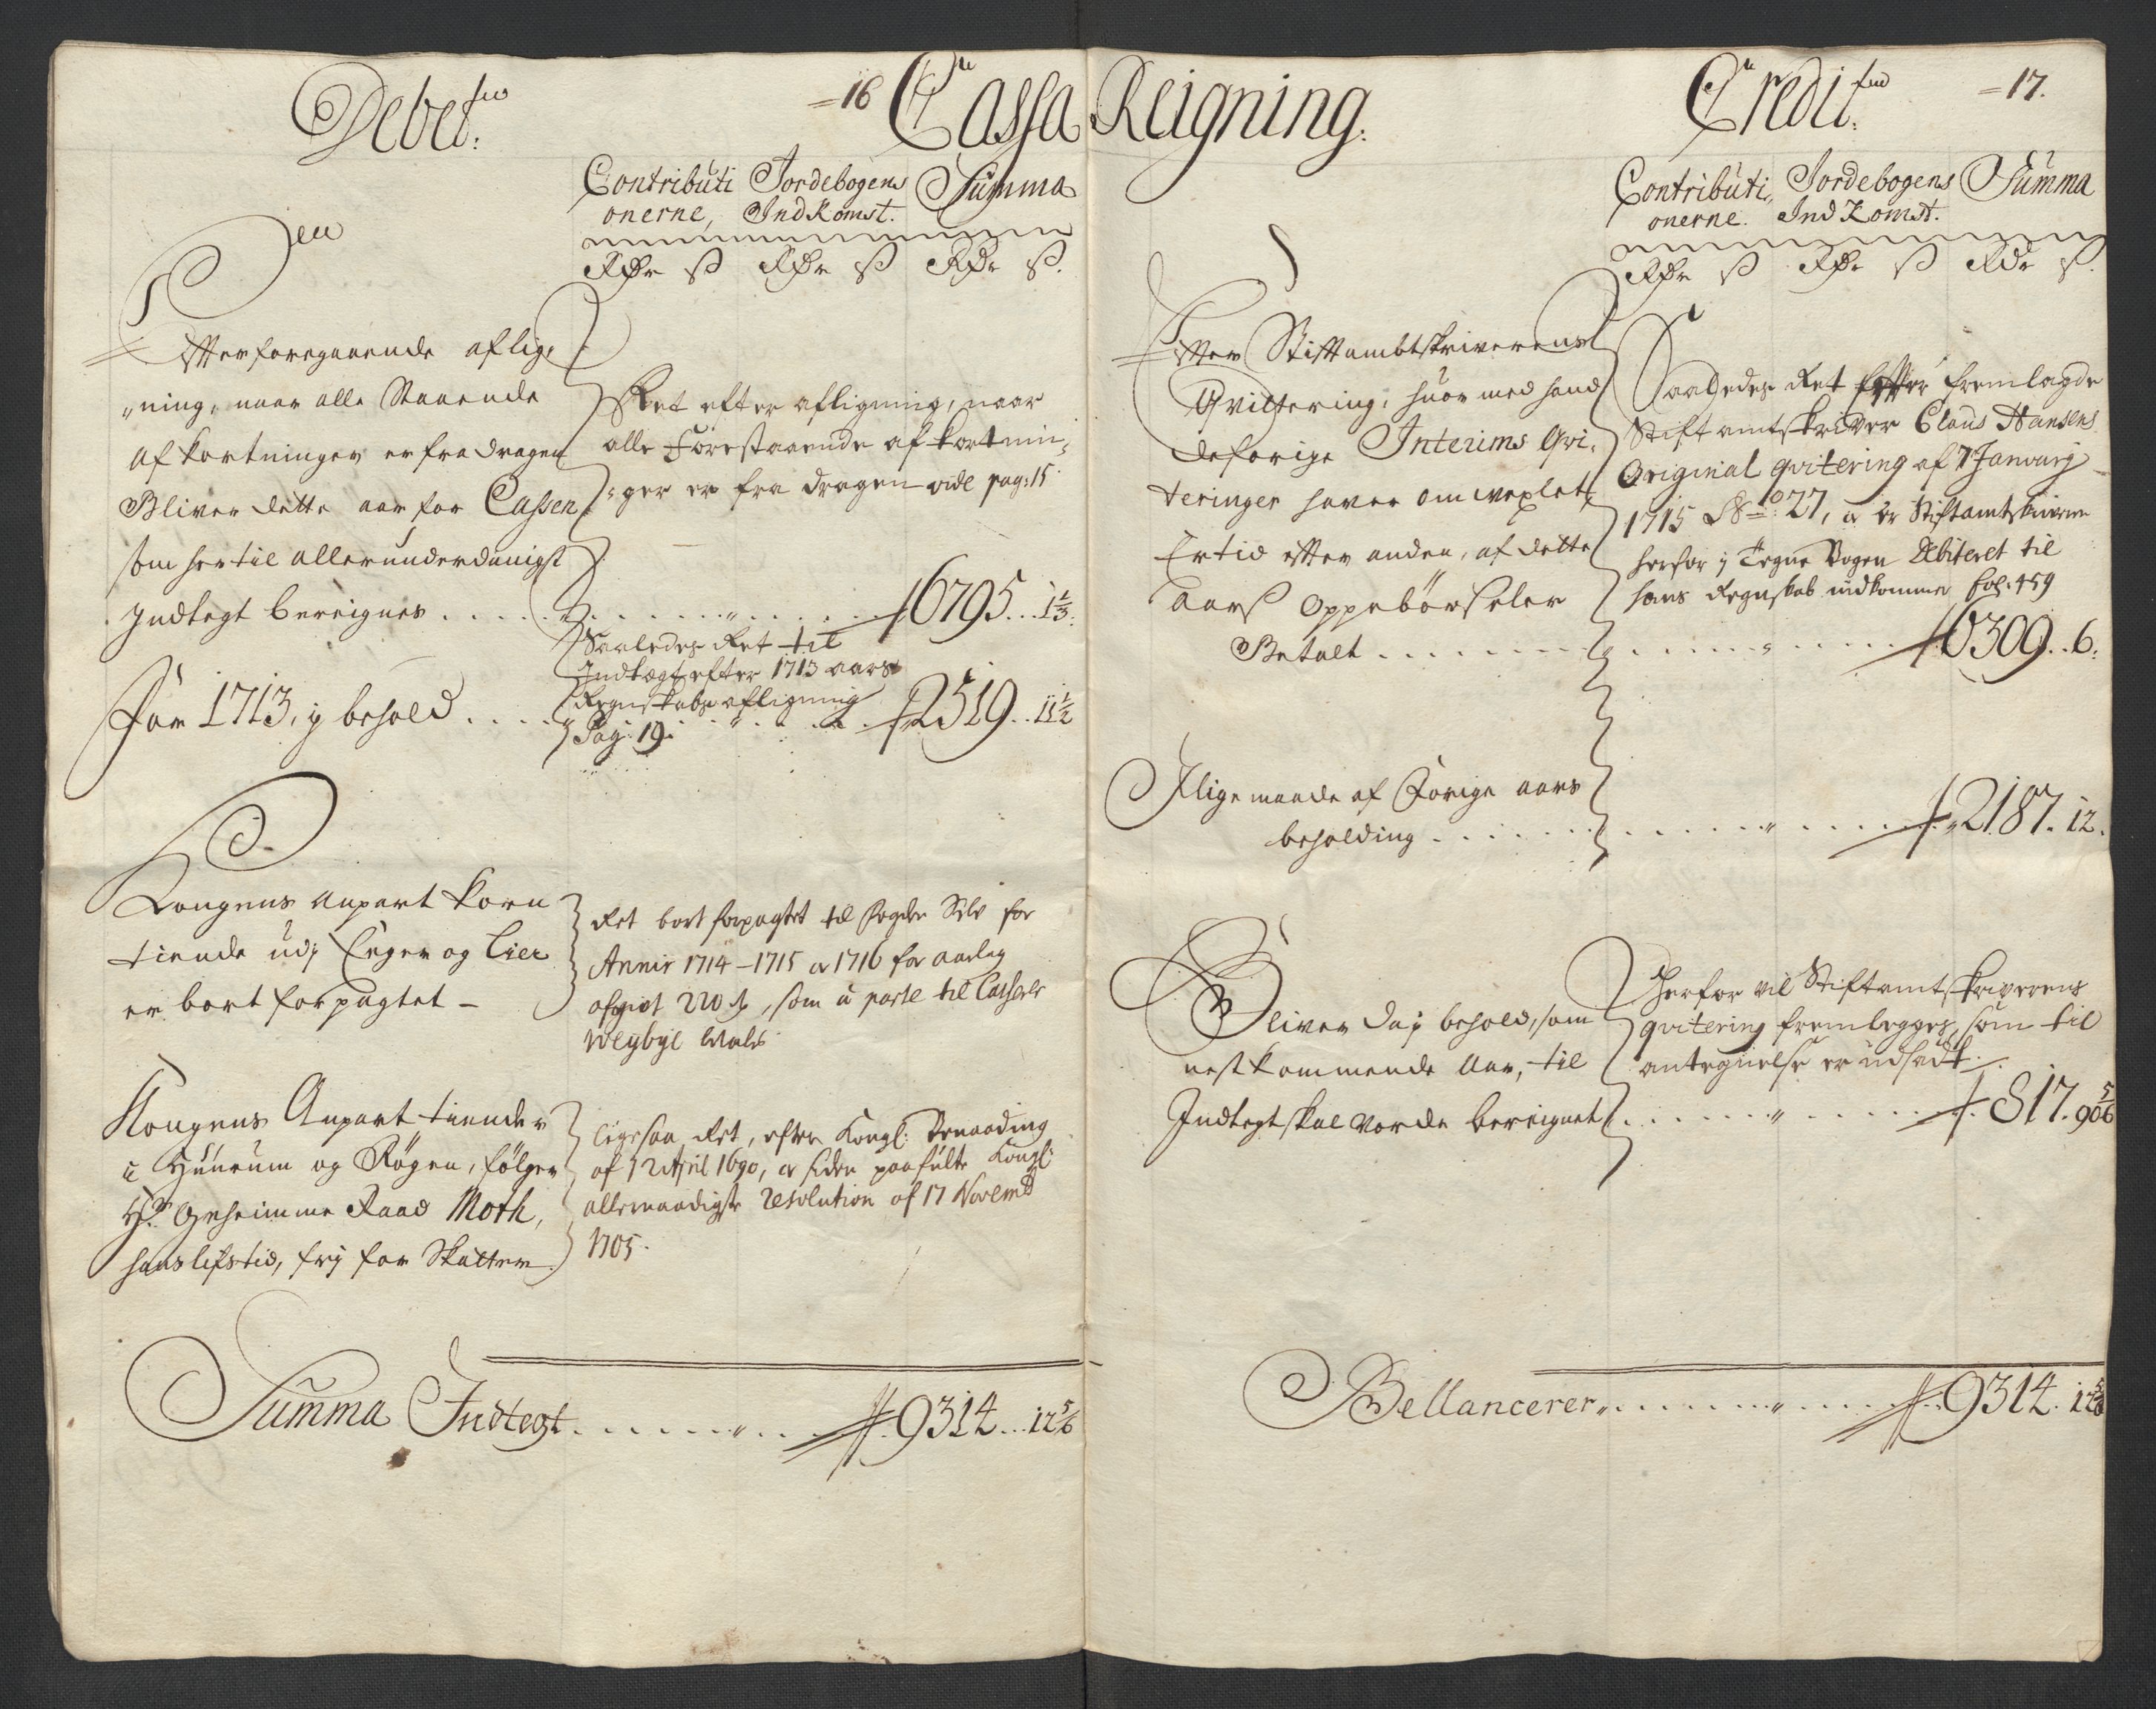 Debet
=16
Cassa Reigning.
Credit
=17.
Contributi Jordebogens Summa
onerne, Indkomst.
Rdr ß Rdr ß Rdr ß.
Efter foregaaende aflig,
„ning, naar alle Staaende
afkortninger er fradragen
Bliver dette aar for Cassen
som her til allerunderdanigst
Indtegt bereignes . . . . 6795 . . 1 1/3
Ret efter afligning, naar
alle Forestaaende afkortnin,
,ger er fra dragen vide pag: 15
For 1713, i behold . . . . 2519 . . 11 1/2
Saaledes Ret til
Indtægt efter 1713 aars
Regnskabs afligning
Pag: 19.
Kongens anpart korn
tiende udj Eger og Lier
er bort forpagtet –
Ret bort forpagtet til Fogden Selv for
Annis 1714 – 1715 a 1716 for aarlig
afgivt 220 , som a parte til Cassen
Kongens Anpart tiender
i Hurum og Røgen, følger
Hr. Geheimme Raad Moth,
hans lifstid, frj for Skatter.
Ligesaa Ret, efter Kongl: Benaading
af 12 April 1690, a siden paafulte Kongl:
allernaadigste Resolution af 17 Novemb
1705.
Summa Indtegt . . . . . . 9314 . . . 12 5/6
Contributi, Jordebogens Summa
onerne. Indkomst.
Rdr ß Rdr ß Rdr ß.
Efter Stiftambtskriverens
Qvittering, huor med hand
deforige Interims Qvi,
teringer haver omvexlet,
Ertid efter anden, af dette
aars Oppebörseler
Betalt . . . . . . 6309 . . 6.
Saaledes Ret efter fremlagde
Stiftamtskriver Claus Hansens
Original qvitering af 7 January
1715 No 27, a er Stiftamtskriveren
herfor j Tegne Bogen Debiteret til
hans Regnskab indkomme fol: 459
J lige maade af Forige aars
beholding . . . . . . 2187. 12.
Bliver da j behold, som
nest kommende Aar, til
Indtegt skal vorde bereignet . . . . . . 817. 90 5/6
Herfor vil Stiftamtskriverens
qvitering fremlegges, som til
antegnelse er udsadt.
Bellancerer . . . . . . 9314. 12 5/6